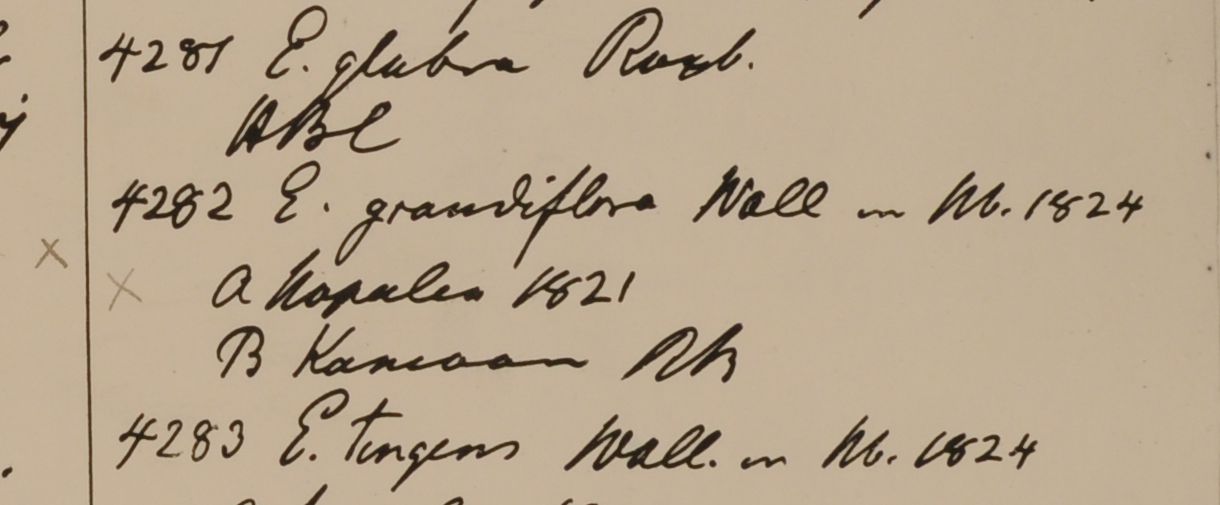 4281 E. glabra Roxb.
HBC
4282 E. grandiflora Wall in litt. 1824
A Napalia 1821
B Kamaon RB
4283 E. tingens Wall. in litt. 1824